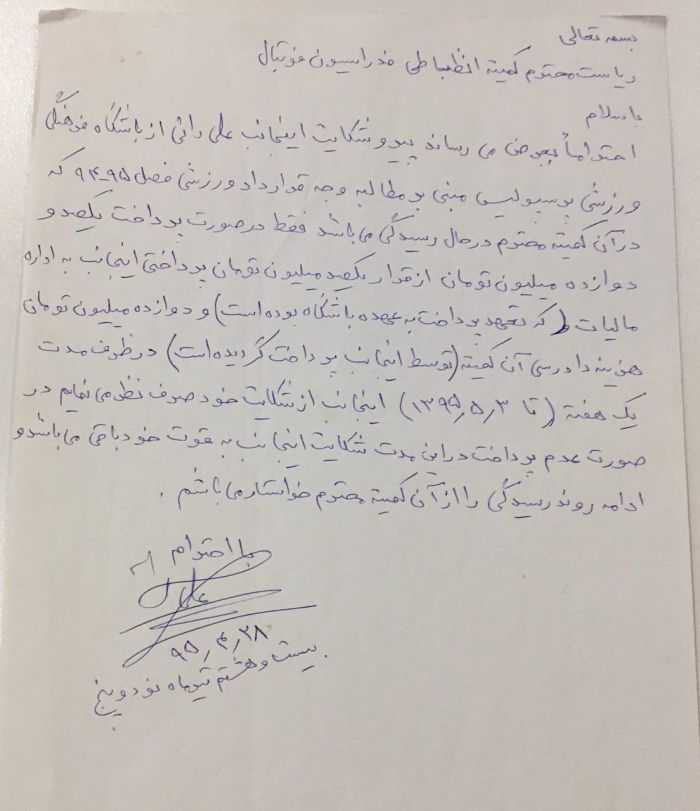 بسمه تعالی
ریاست محترم کمیته انظباطی فدراسیون فوتبال
باسلام
احتراماً بعرض می رساند پیرو شکایت اینجانب علی دائی از باشگاه فرهنگی
ورزشی پرسپولیس مبنی بر مطالبه وجه قرارداد ورزشی فصل ۹۵-۹۴ که
در آن کمیته محترم در حال رسیدگی می باشد فقط در صورت پرداخت یکصد و
دوازده میلیون تومان از قرار یکصد میلیون تومان پرداختی اینجانب به اداره
مالیات (که تعهد پرداخت به عهده باشگاه بوده است) و دوازده میلیون تومان
هزینه دادرسی آن کمیته (توسط اینجانب پرداخت گردیده است) در ظرف مدت
یک هفته (تا ۱۳۹۵٫۵٫۳) اینجانب از شکایت خود صرف نظر می نمایم در
صورت عدم پرداخت در این مدت شکایت اینجانب به قوت خود باقی می باشد و
ادامه روند رسیدگی را از آن کمیته محترم خواستار می باشم .
با احترام
علی
۹۵٫۴٫۲۸
بیست و هشتم تیرماه نود و پنج